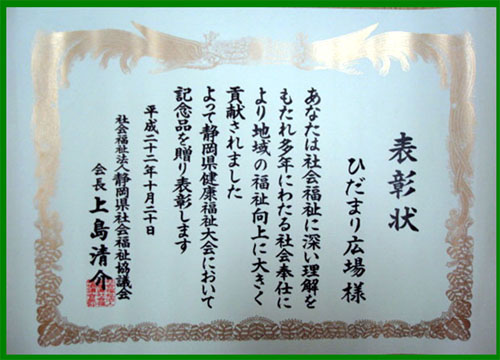 表彰状
ひだまり広場様
あなたは社会福祉に深い理解を
もたれ多年にわたる社会奉仕に
より地域の福祉向上に大きく
貢献されました
よって静岡県健康福祉大会において
記念品を贈り表彰します
平成二十二年十月二十日
社会福祉法人静岡県社会福祉協議会
会長上島清介